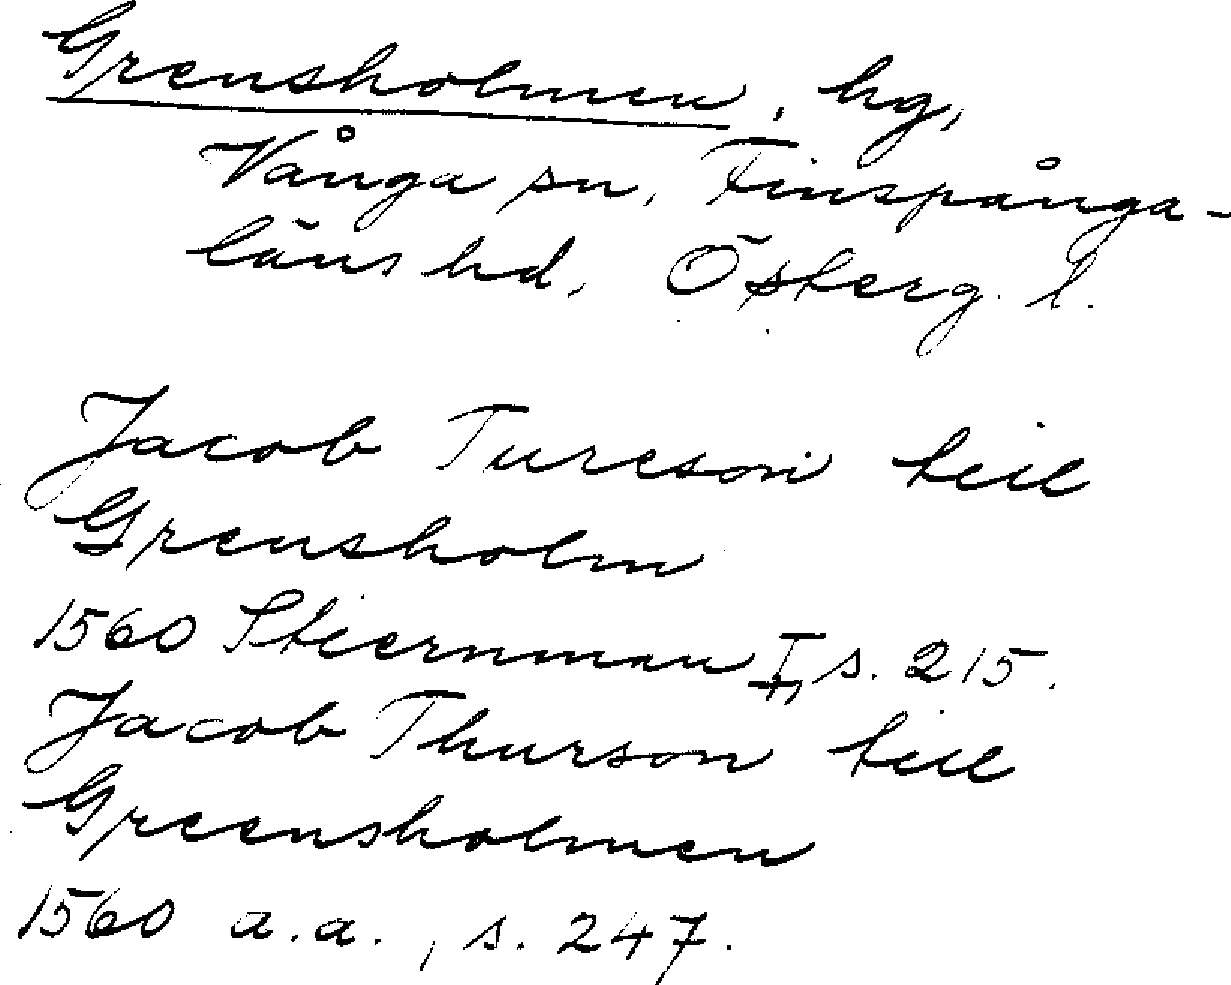 Grensholmen, hg,
Vånga sn, Finspånga-
läns hd, Österg. l.
Jacob Tureson till
Grensholm
1560 Stiernman I, s. 215.
Jacob Thurson till
Greensholmen
1560 a.a., s. 247.